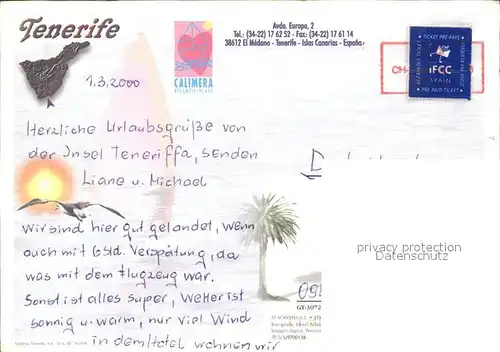 Tenerife
1.3.2000
CALIMERA
ATLANTIC PLAYA
Avda. Europa, 2
Tel.: (34-22) 17 62 52 - Fax: (34-22) 17 61 14
38612 El Médano - Tenerife - Islas Canarias - España
TICKET PRE-PAYE
iFCC
SPAIN
PRE-PAID TICKET
CH-
Herzliche Urlaubsgrüße von
der Insel Teneriffa, senden
Liane u. Michael
Wir sind hier gut gelandet, wenn
auch mit 6 Std. Verspätung, da
was mit dem Flugzeug war.
Sonst ist alles super, Wetter ist
sonnig u. warm, nur viel Wind
in dem Hotel wohnen wir
D
privacy protection
Datenschutz
091
GT-3072